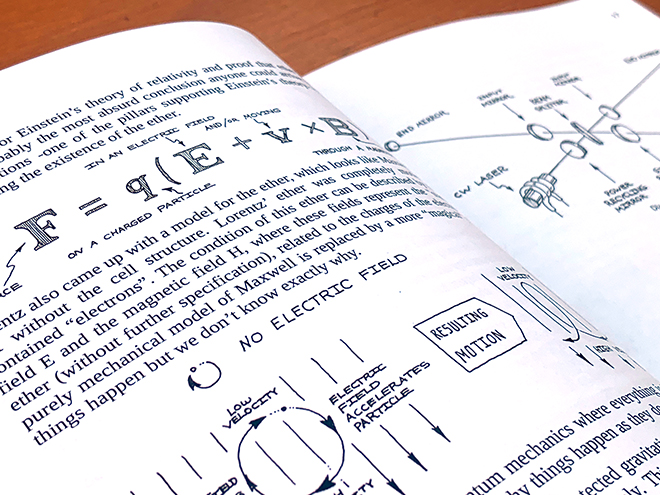 or Einstein's theory of relativity and proof that
bably the most absurd conclusion anyone could
tions -one of the pillars supporting Einstein's theory
ng the existence of the ether.
IN AN ELECTRIC FIELD
AND/OR MOVING
F = q(E + v × B
THROUGH A
ON A CHARGED PARTICLE
entz also came up with a model for the ether, which looks like
without the cell structure. Lorentz' ether was completely
ontained "electrons". The condition of this ether can be described
field E and the magnetic field H, where these fields represent the
ether (without further specification), related to the charges of the
purely mechanical model of Maxwell is replaced by a more "magical
things happen but we don't know exactly why.
NO ELECTRIC FIELD
LOW
VELOCITY
ELECTRIC
FIELD
ACCELERATES
PARTICLE
RESULTING
MOTION
LOW
VELOCITY
HIGH
antum mechanics where everything
things happen as they do
gravitat
END MIRROR
INPUT
MIRROR
BEAM
SPLITTER
CW LASER
POWER
RECYCLING
MIRROR